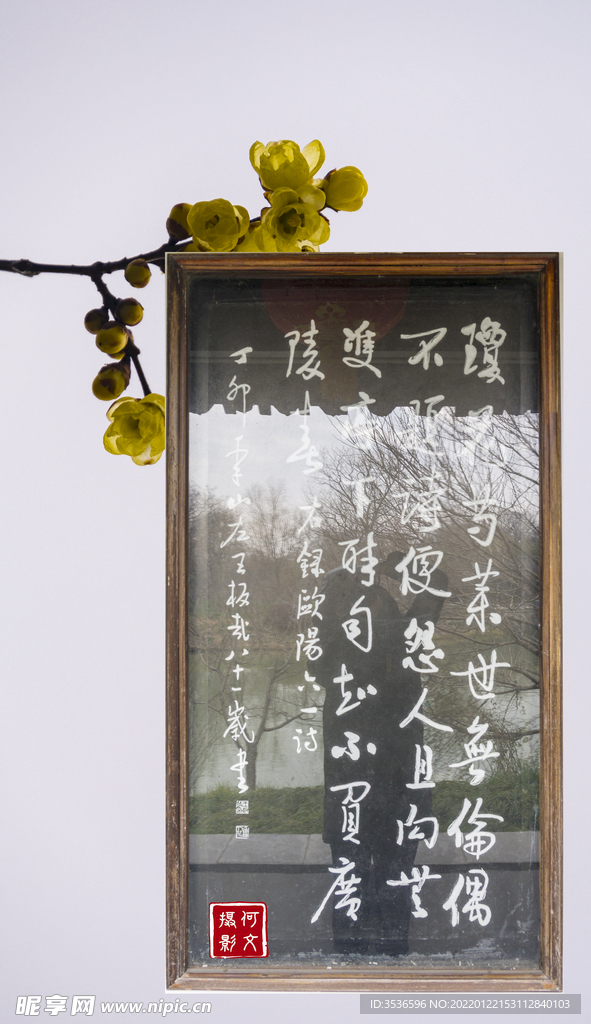 瓊花芍藥世無倫偶
不題詩便怨人且向無
雙亭下醉自知不負廣
陵春右錄歐陽六一詩
丁卯山左王板哉八十一歲書
何文
摄影
昵享网 www.nipic.cn
ID:3536596 NO:20220122153112840103